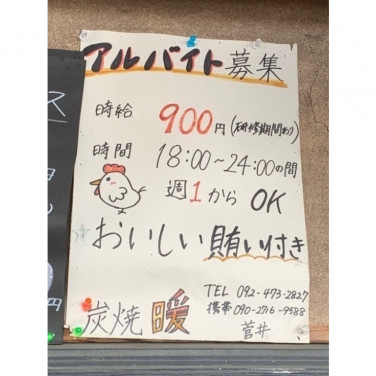 アルバイト募集
時給 900円(研修期間あり)
時間 18:00~24:00の間
週1から OK
おいしい賄い付き
炭焼 暖
TEL 092-473-2827
携帯 090-2716-9588
菅井
ス
円